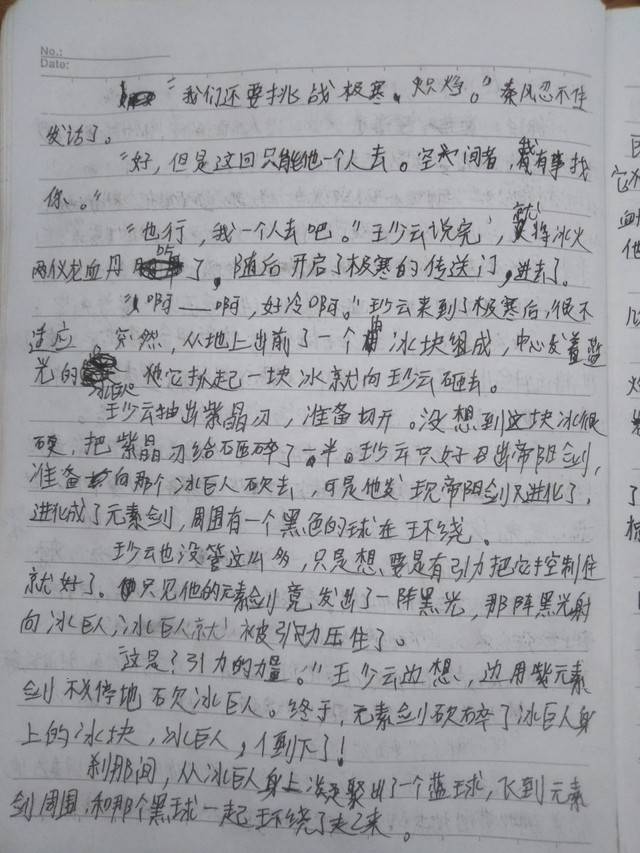 No.:
Date:
"我们还要挑战极寒、炽焰。"秦风忍不住
发话了。
"好,但是这回只能他一个人去。空间者,我有事找
你。"
"也行,我一个人去吧。"王少云说完,就将冰火
两仪龙血丹吃了,随后开启了极寒的传送门,进去了。
"啊——啊,好冷啊。"王少云来到了极寒后,很不
适应。突然,从地上出前了一个由冰块组成,中心发着蓝
光的冰巨人 他它抓起一块冰就向王少云砸去。
王少云抽出紫晶刃,准备切开。没想到这块冰很
硬,把紫晶刃给砸碎了一半。王少云只好召出帝阳剑,
准备向那个冰巨人砍去,可是他发现帝阳剑又进化了,
进化成了元素剑,周围有一个黑色的球在环绕。
王少云也没管这么多,只是想要是有引力把它控制住
就好了。只见他的元素剑竟发出了一阵黑光,那阵黑光射
向冰巨人,冰巨人就被引力压住了。
这是?引力的力量。"王少云边想,边用元素
剑不停地砍冰巨人。终于,元素剑砍碎了冰巨人身
上的冰块,冰巨人,倒下了!
刹那间,从冰巨人身上凝聚出了一个蓝球,飞到元素
剑周围,和那个黑球一起环绕了起来。